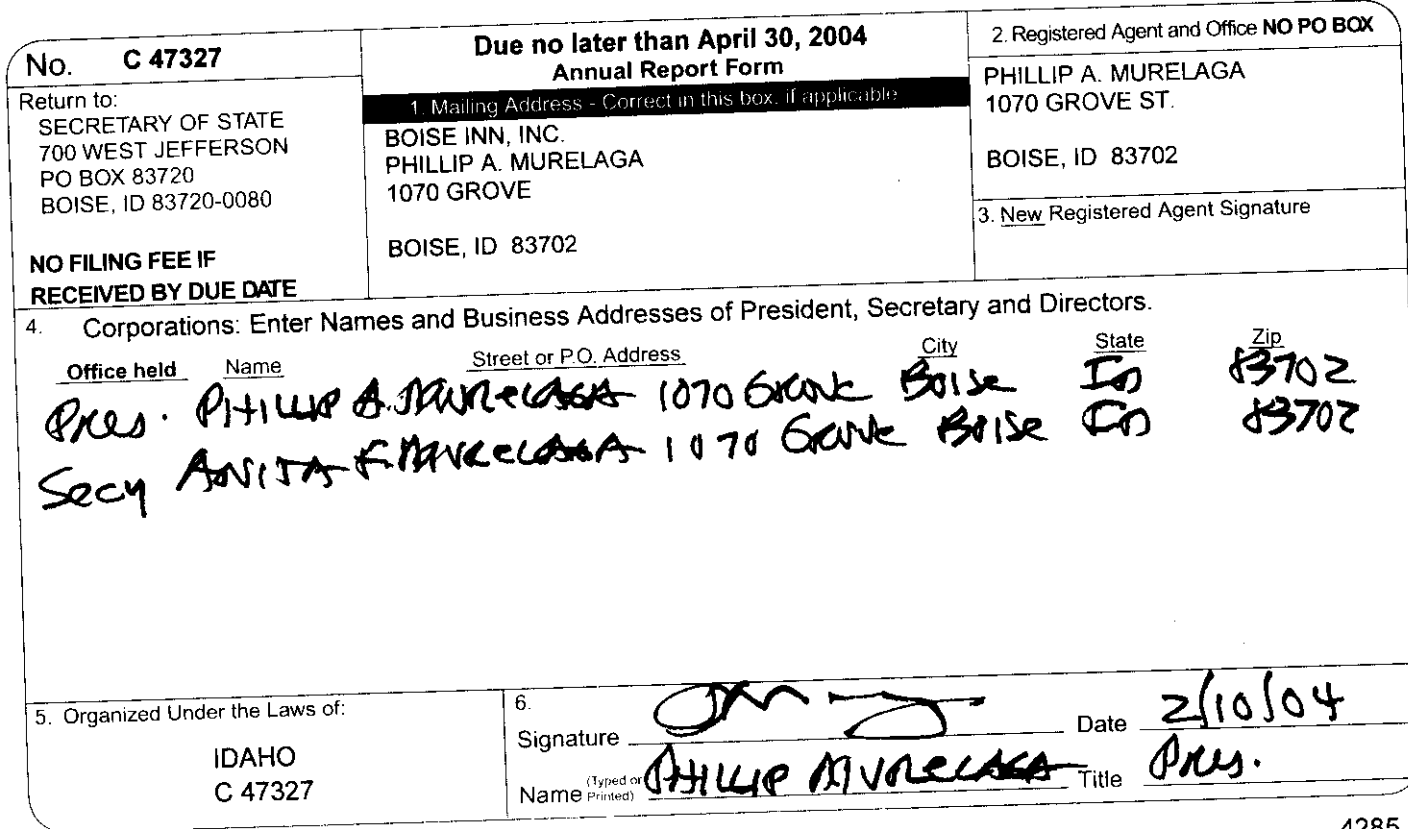 No. C 47327
Return to:
SECRETARY OF STATE
700 WEST JEFFERSON
PO BOX 83720
BOISE, ID 83720-0080
NO FILING FEE IF
RECEIVED BY DUE DATE
Due no later than April 30, 2004
Annual Report Form
1. Mailing Address - Correct in this box, if applicable
BOISE INN, INC.
PHILLIP A. MURELAGA
1070 GROVE
BOISE, ID 83702
2. Registered Agent and Office NO PO BOX
PHILLIP A. MURELAGA
1070 GROVE ST.
BOISE, ID 83702
3. New Registered Agent Signature
4. Corporations: Enter Names and Business Addresses of President, Secretary and Directors.
Office held Name Street or P.O. Address City State Zip
Pres. PHILLIP A. MURELAGA 1070 Grove Boise ID 83702
Secy ANITA F. MURELAGA 1070 Grove Boise ID 83702
5. Organized Under the Laws of:
IDAHO
C 47327
6.
Signature Date 2/10/04
Name (Typed or Printed) PHILLIP MURELAGA Title Pres.
4285